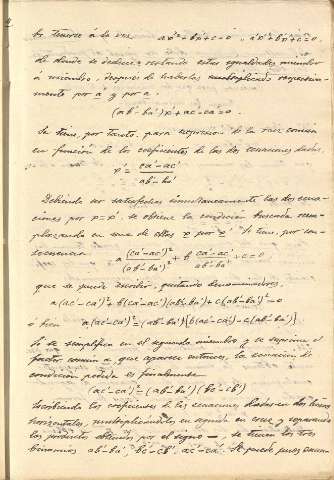 be tenerse á la vez ax'²+bx'+c=0, a'x'²+b'x'+c'=0.
de donde se deduce, restando estas igualdades miembro
á miembro, despues de haberlas multiplicado respectiva-
mente por a' y por a.
(ab'-ba')x'+ac'-ca'=0.
Se tiene, por tanto, para expresion de la raiz comun
en funcion de los coeficientes de las dos ecuaciones dadas
x'= ca'-ac' / ab'-ba'
Debiendo ser satisfechas simultaneamente las dos ecua-
ciones por x=x', se obtiene la condicion buscada reem-
plazando en una de ellas x por x'. Se tiene, por con-
secuencia
a (ca'-ac')² / (ab'-ba')² + b ca'-ac' / ab'-ba' + c=0
que se puede escribir, quitando denominadores,
a(ac'-ca')²+b(ca'-ac')(ab'-ba')+c(ab'-ba')²=0
ó bien a(ac'-ca')²=(ab'-ba')[b(ac'-ca')-c(ab'-ba')]
Si se simplifica en el segundo miembro y se suprime el
factor comun a que aparece entonces, la ecuacion de
condicion pedida es finalmente
(ac'-ca')²=(ab'-ba')(bc'-cb')
Escribiendo los coeficientes de las ecuaciones dadas en dos lineas
horizontales, multiplicándolos en seguida en cruz y separando
los productos obtenidos por el signo -, se tienen los tres
binomios ab'-ba', bc'-cb', ac'-ca'. Se puede pues enun-